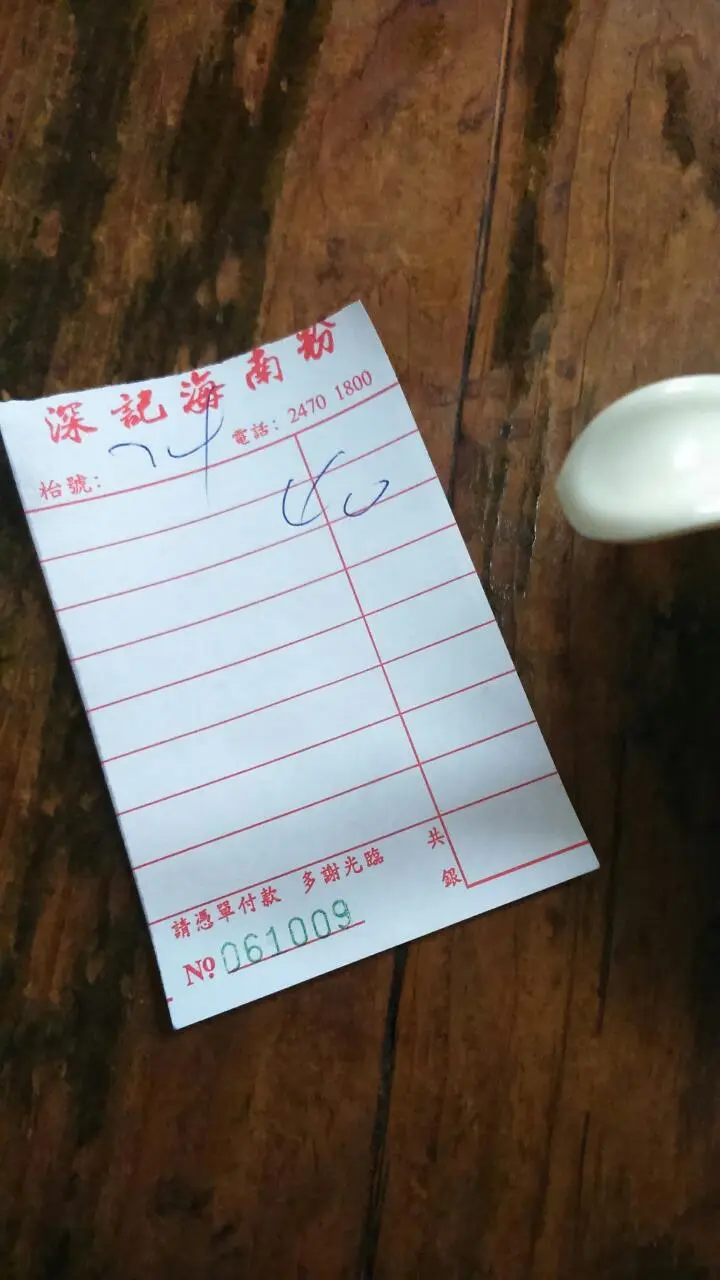 深記海南粉
枱號: 24 電話: 2470 1800
40
共銀
請憑單付款 多謝光臨
Nº 061009